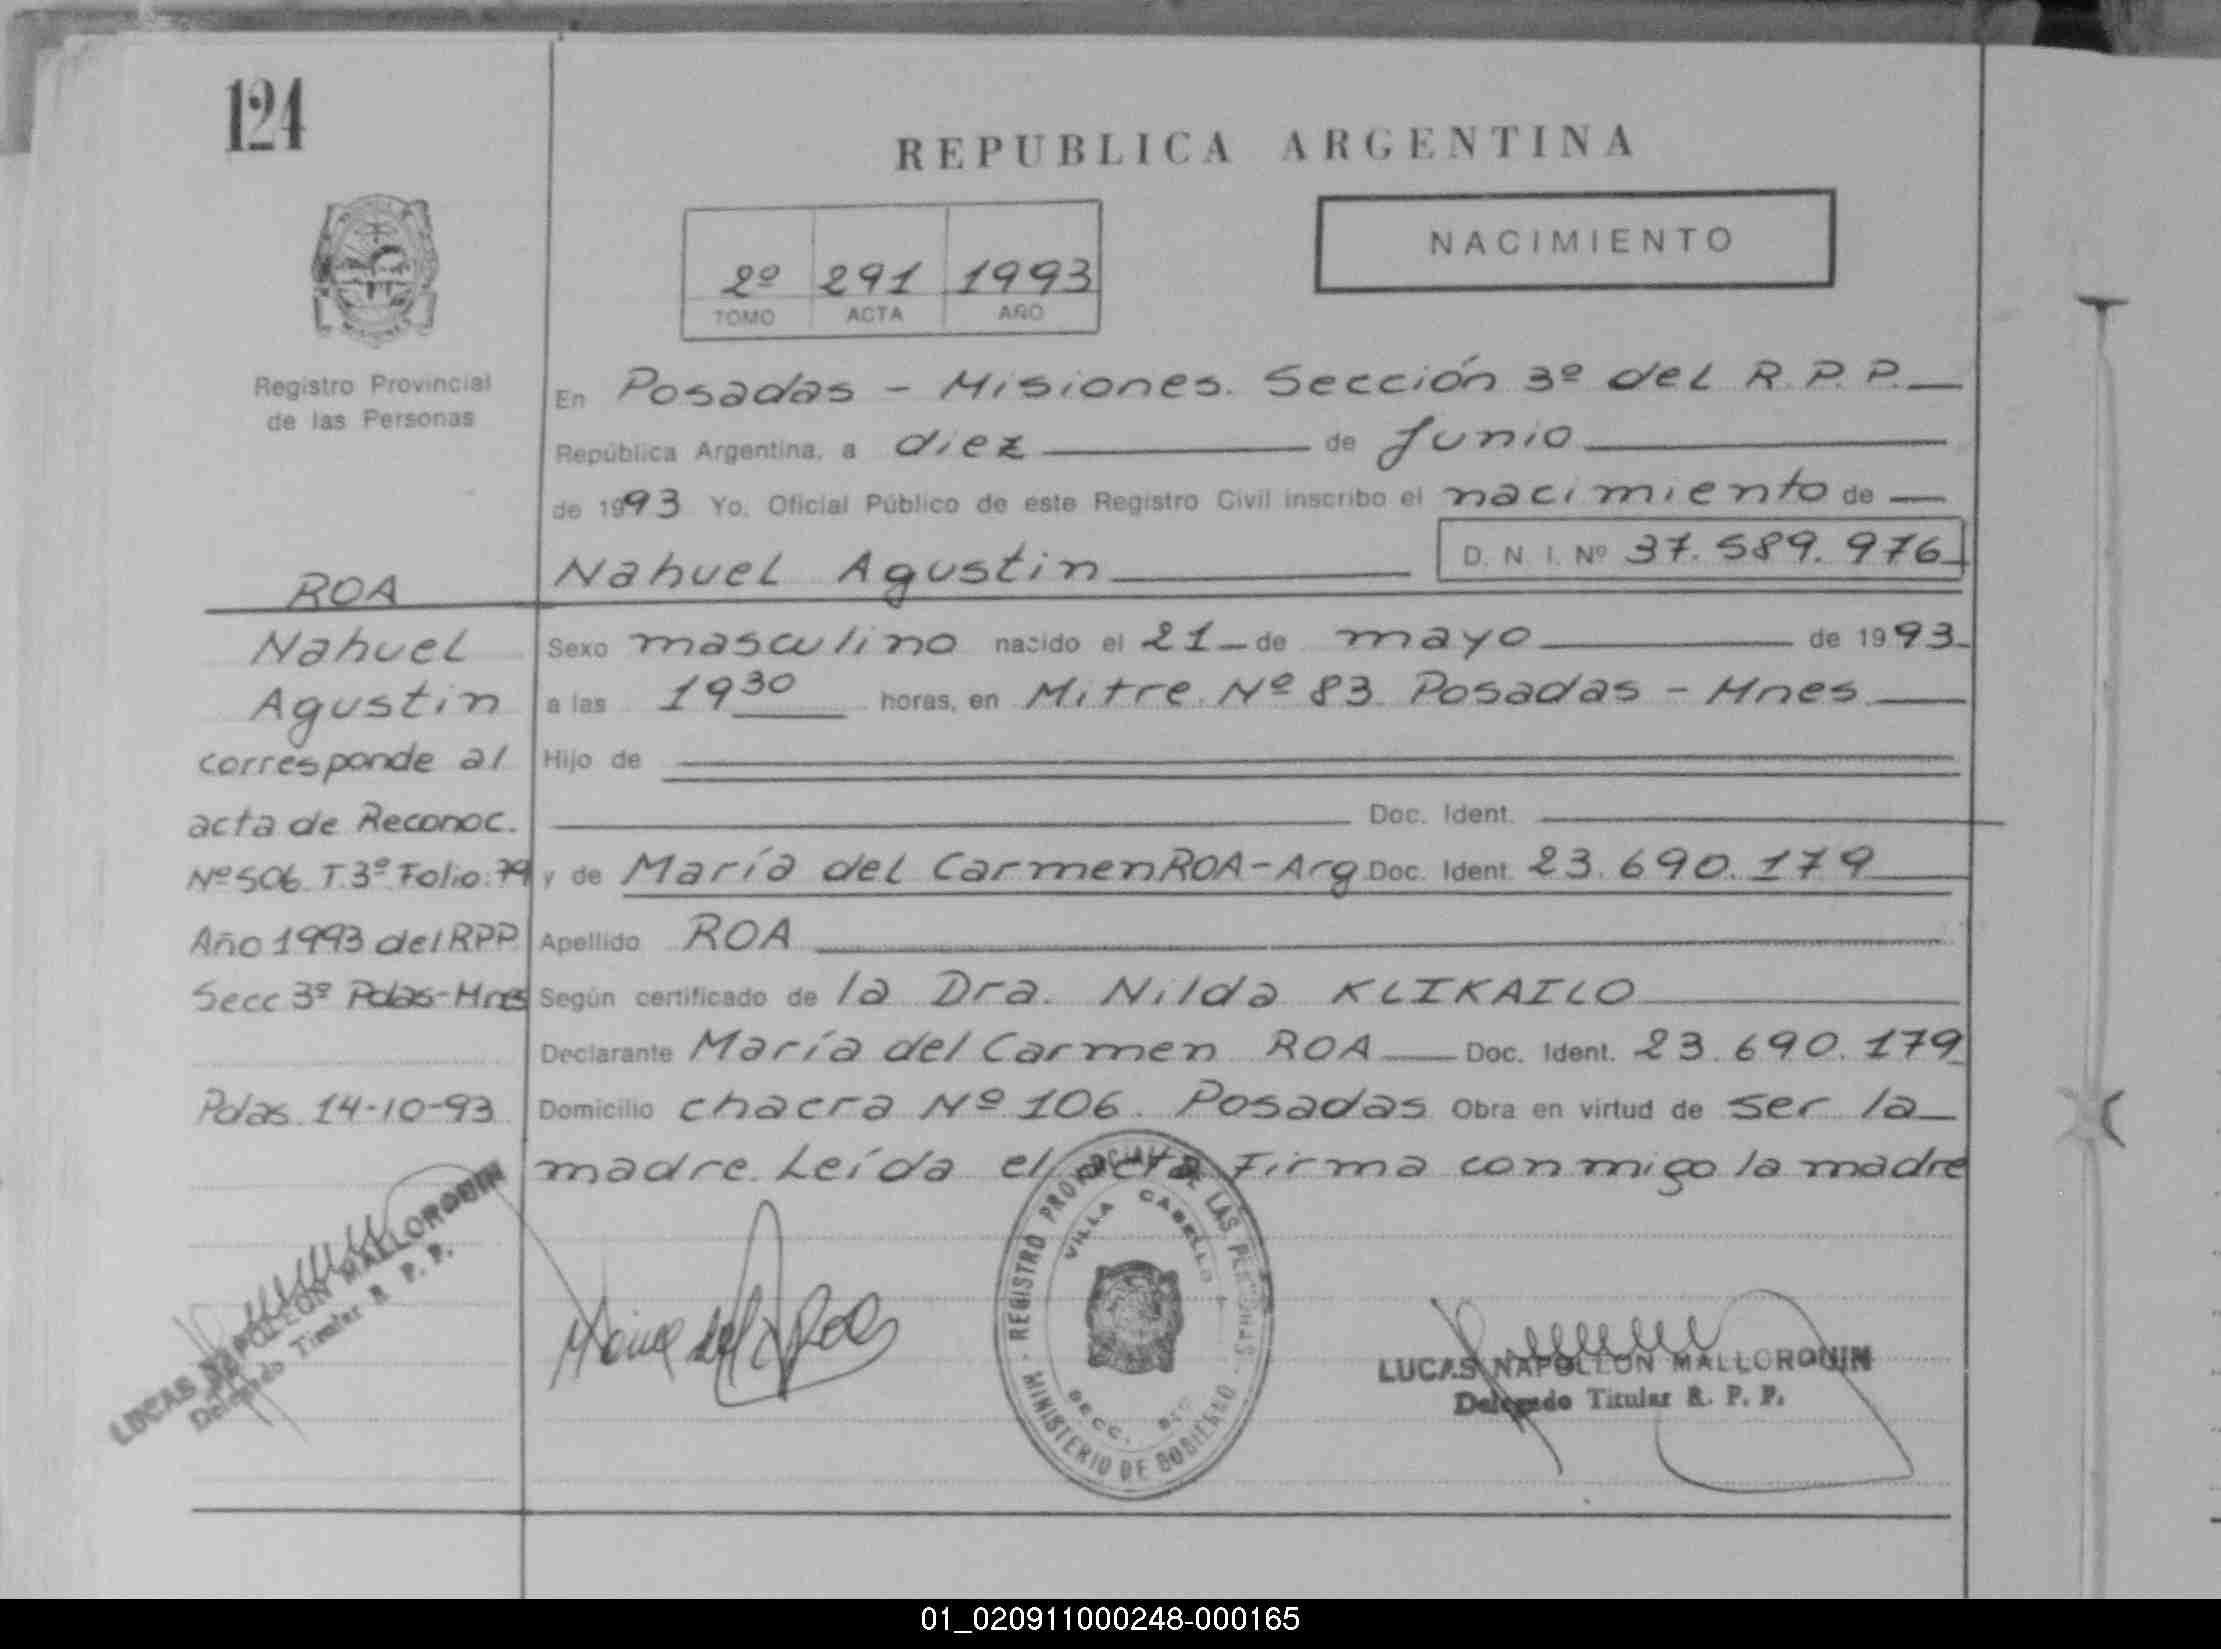 124
REPUBLICA ARGENTINA
NACIMIENTO
2º 291 1993
TOMO ACTA AÑO
Registro Provincial
de las Personas
En Posadas - Misiones. Sección 3º del R.P.P.
República Argentina, a diez de Junio
de 1993 Yo, Oficial Público de este Registro Civil inscribo el nacimiento de
Nahuel Agustin D. N. I. Nº 37.589.976
ROA
Nahuel
Agustin
corresponde al
acta de Reconoc.
Nº 506 T.3º Folio:79
Año 1993 del RPP
Secc 3º Pdas-Mnes
Pdas 14-10-93
Sexo masculino nacido el 21 de mayo de 1993
a las 19 30 horas, en Mitre Nº 83 Posadas - Mnes
Hijo de
Doc. Ident.
y de María del Carmen ROA-Arg Doc. Ident. 23.690.179
Apellido ROA
Según certificado de la Dra. Nilda KLIKAILO
Declarante María del Carmen ROA Doc. Ident. 23.690.179
Domicilio chacra Nº 106. Posadas Obra en virtud de ser la
madre. Leída el acta Firma conmigo la madre
LUCAS NAPOLEON MALLORQUIN
Delegado Titular R. P. P.
REGISTRO PROVINCIAL DE LAS PERSONAS
VILLA CABELLO
SECC.
MINISTERIO DE GOBIERNO
LUCAS NAPOLEON MALLORQUIN
Delegado Titular R. P. P.
01_020911000248-000165